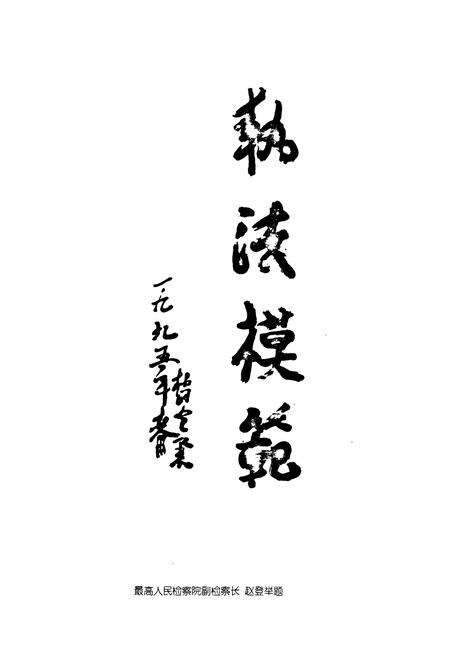 執法模範
一九九五年春
赵登举
最高人民检察院副检察长 赵登举题